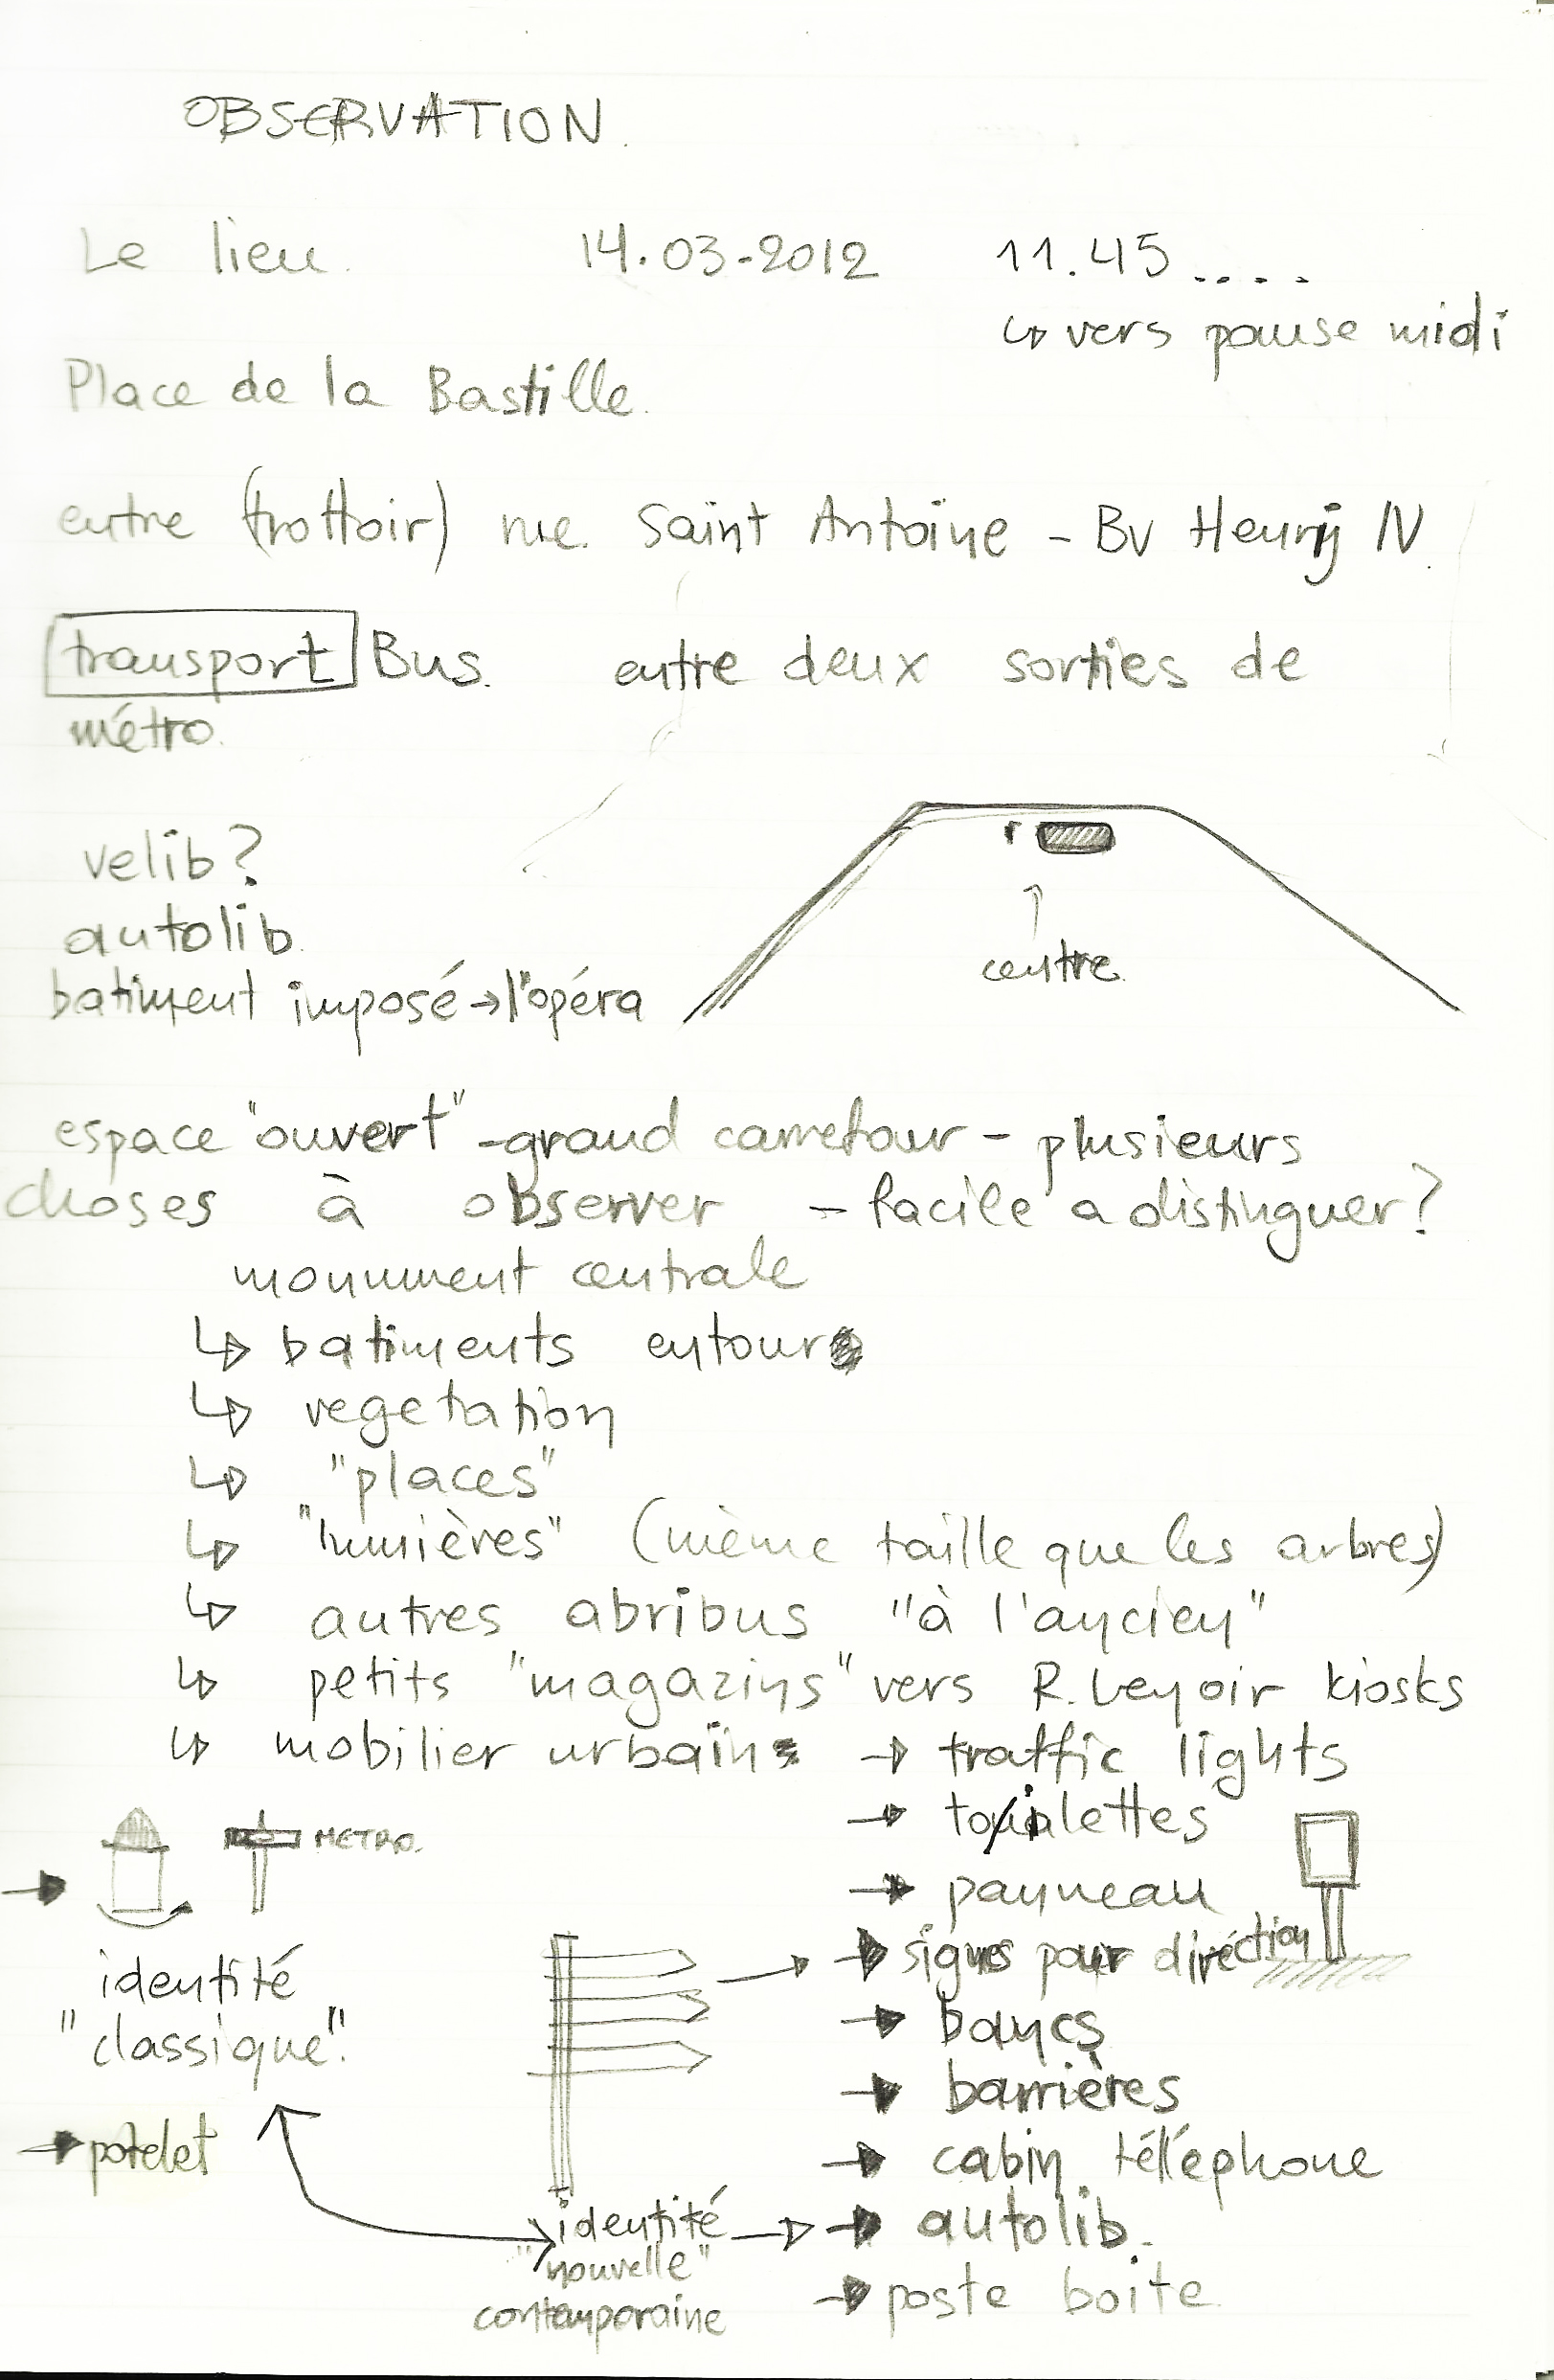 OBSERVATION.
Le lieu. 14.03.2012 11.45 ....
↳ vers pause midi
Place de la Bastille.
entre (trottoir) rue Saint Antoine - Bv Henry IV.
transport Bus. entre deux sorties de
métro.
velib?
autolib.
batiment imposé → l'opéra
centre.
espace "ouvert" - grand carrefour - plusieurs
choses à observer - facile a distinguer?
monument centrale
↳ batiments entour
↳ vegetation
↳ "places"
↳ "lumières" (mème taille que les arbres)
↳ autres abribus "à l'ancien"
↳ petits "magazins" vers R. Lenoir kiosks
↳ mobilier urbain → traffic lights
→ toilettes
METRO.
→ panneau
→ signes pour diréction
identité
"classique".
→ bancs
→ barrières
→ potelet
→ cabin téléphone
identité → → autolib.
"nouvelle"
contemporaine
→ poste boite.